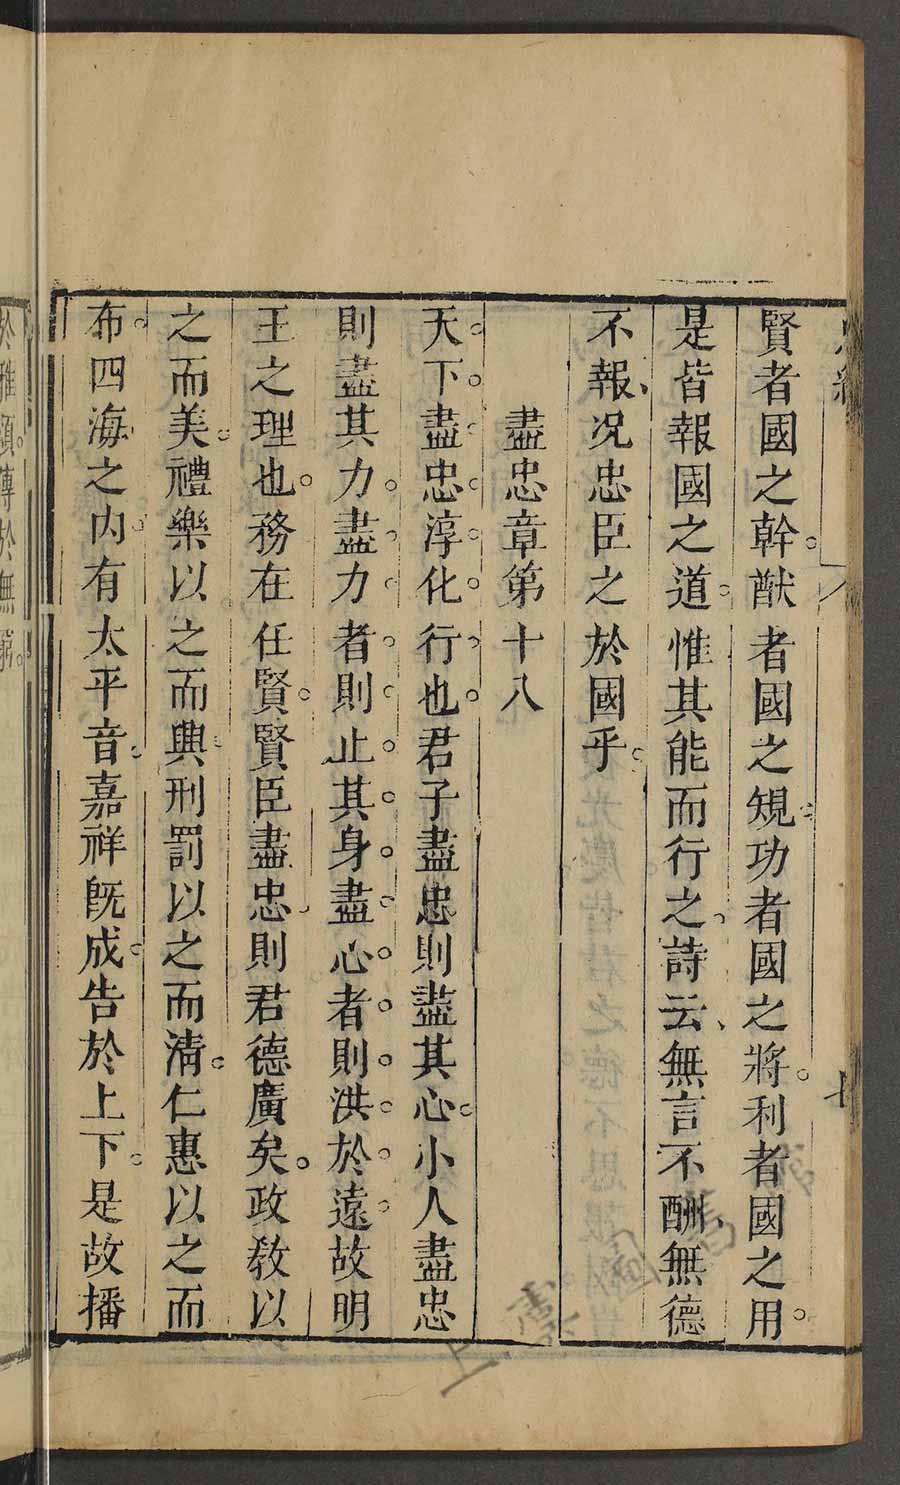 賢者國之幹猷者國之規功者國之將利者國之用
是皆報國之道惟其能而行之詩云無言不酬無德
不報况忠臣之於國乎
盡忠章第十八
天下盡忠淳化行也君子盡忠則盡其心小人盡忠
則盡其力盡力者則止其身盡心者則洪於遠故明
王之理也務在任賢賢臣盡忠則君德廣矣政敎以
之而美禮樂以之而興刑罰以之而清仁惠以之而
布四海之内有太平音嘉祥旣成告於上下是故播
於雅頌傳於無窮